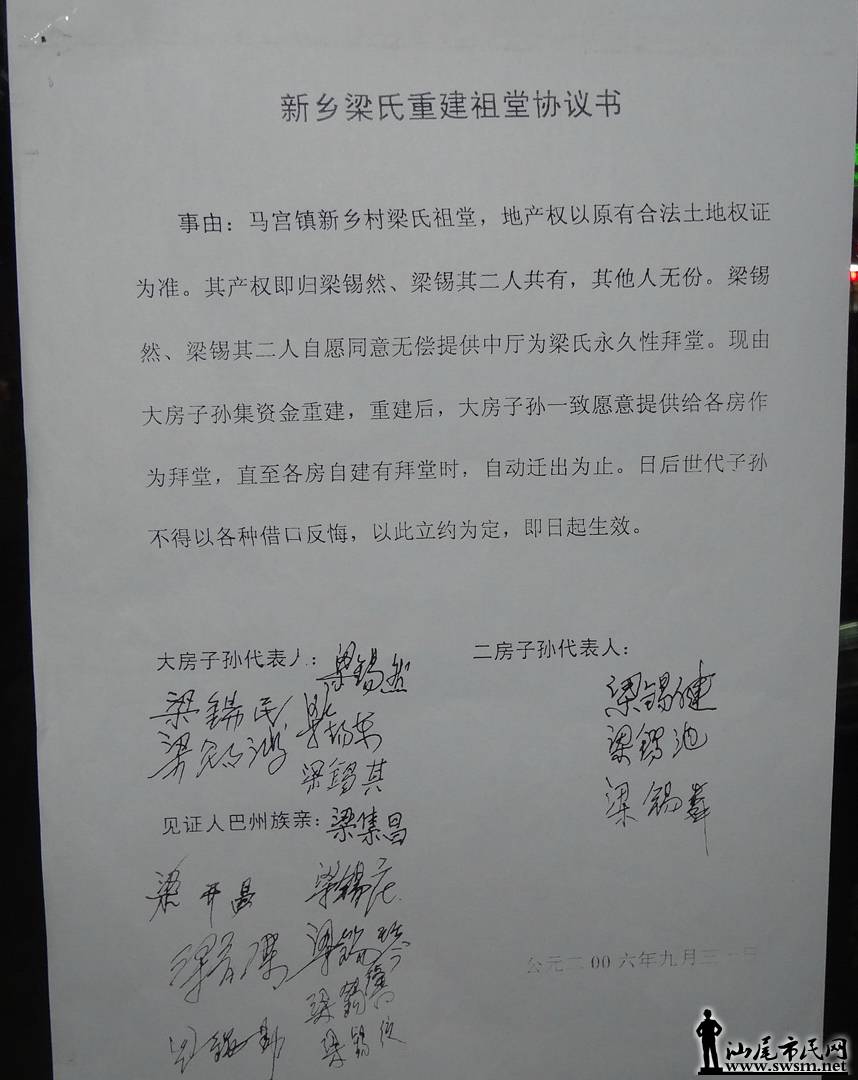 新乡梁氏重建祖堂协议书
事由：马宫镇新乡村梁氏祖堂，地产权以原有合法土地权证
为准。其产权即归梁锡然、梁锡其二人共有，其他人无份。梁锡
然、梁锡其二人自愿同意无偿提供中厅为梁氏永久性拜堂。现由
大房子孙集资金重建，重建后，大房子孙一致愿意提供给各房作
为拜堂，直至各房自建有拜堂时，自动迁出为止。日后世代子孙
不得以各种借口反悔，以此立约为定，即日起生效。
大房子孙代表人：梁锡然
二房子孙代表人：
梁锡健
梁錫民
梁锡池
梁锡其
梁锡
见证人巴州族亲：梁集昌
梁开昌
梁锡
梁锡
公元二00六年九月三
汕尾市民网
www.swsm.net